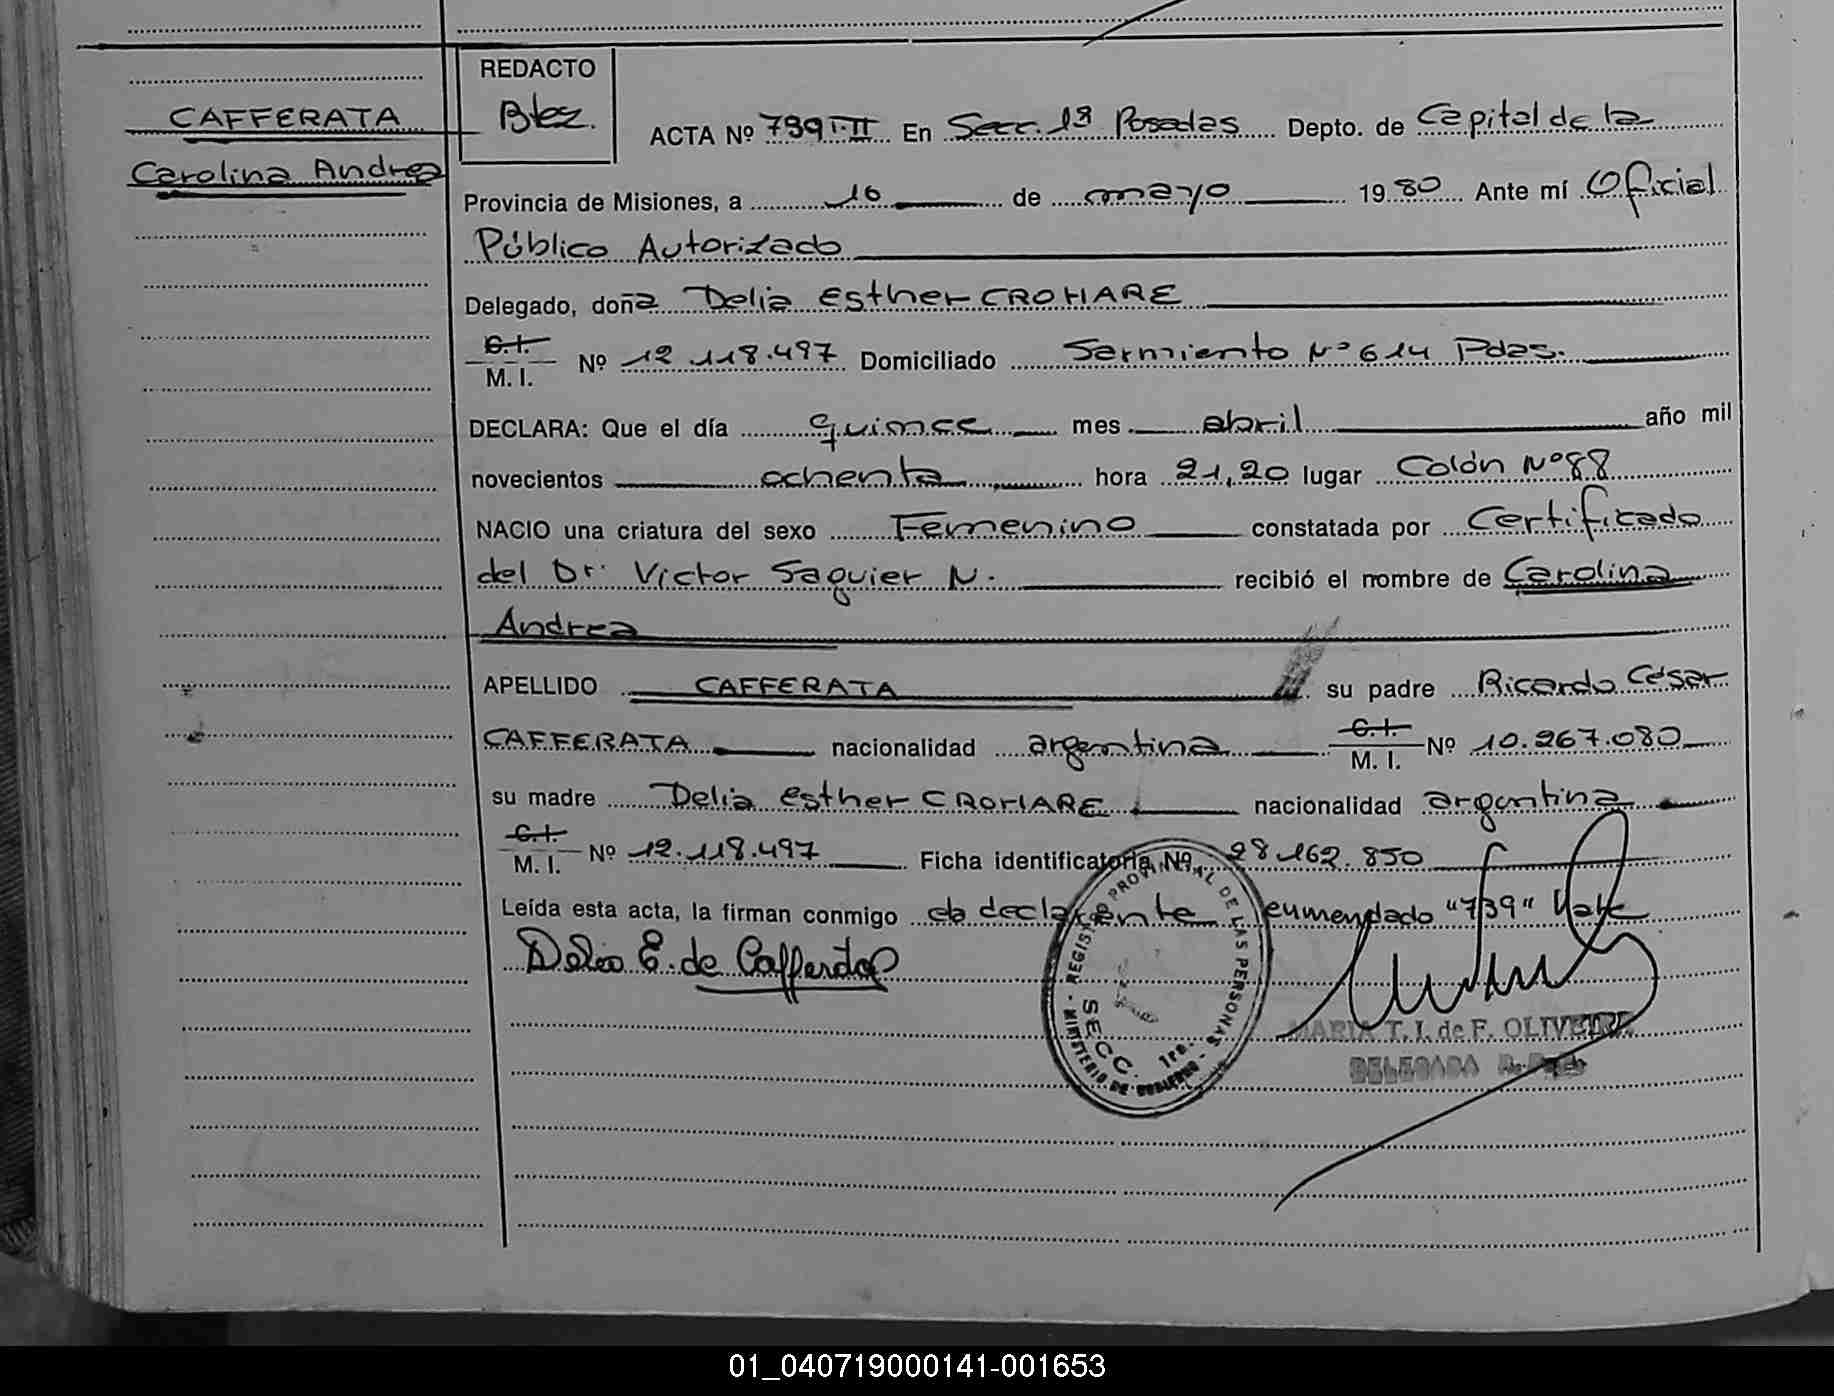 REDACTO
CAFFERATA
Carolina Andrea
ACTA Nº 739 I-II En Secc. 1ª Posadas Depto. de Capital de la
Provincia de Misiones, a 16 de mayo 1980 Ante mí Oficial
Público Autorizado
Delegado, doña Delia Esther CROHARE
C.I. M. I. Nº 12.118.497 Domiciliado Sarmiento Nº 614 Pdas.
DECLARA: Que el día quince mes abril año mil
novecientos ochenta hora 21,20 lugar Colón Nº 88
NACIO una criatura del sexo Femenino constatada por Certificado
del Dr. Victor Saguier N. recibió el nombre de Carolina
Andrea
APELLIDO CAFFERATA su padre Ricardo César
CAFFERATA nacionalidad argentina C.I. M. I. Nº 10.267.080
su madre Delia Esther CROHARE nacionalidad argentina
C.I. M. I. Nº 12.118.497 Ficha identificatoria Nº 28.162.850
Leída esta acta, la firman conmigo la declarante enmendado "739" Vale
Delia E. de Cafferata
REGISTRO PROVINCIAL DE LAS PERSONAS
MINISTERIO DE GOBIERNO
SECC. 1ra.
MARIA T. I. de F. OLIVEIRA
DELEGADA
01_040719000141-001653